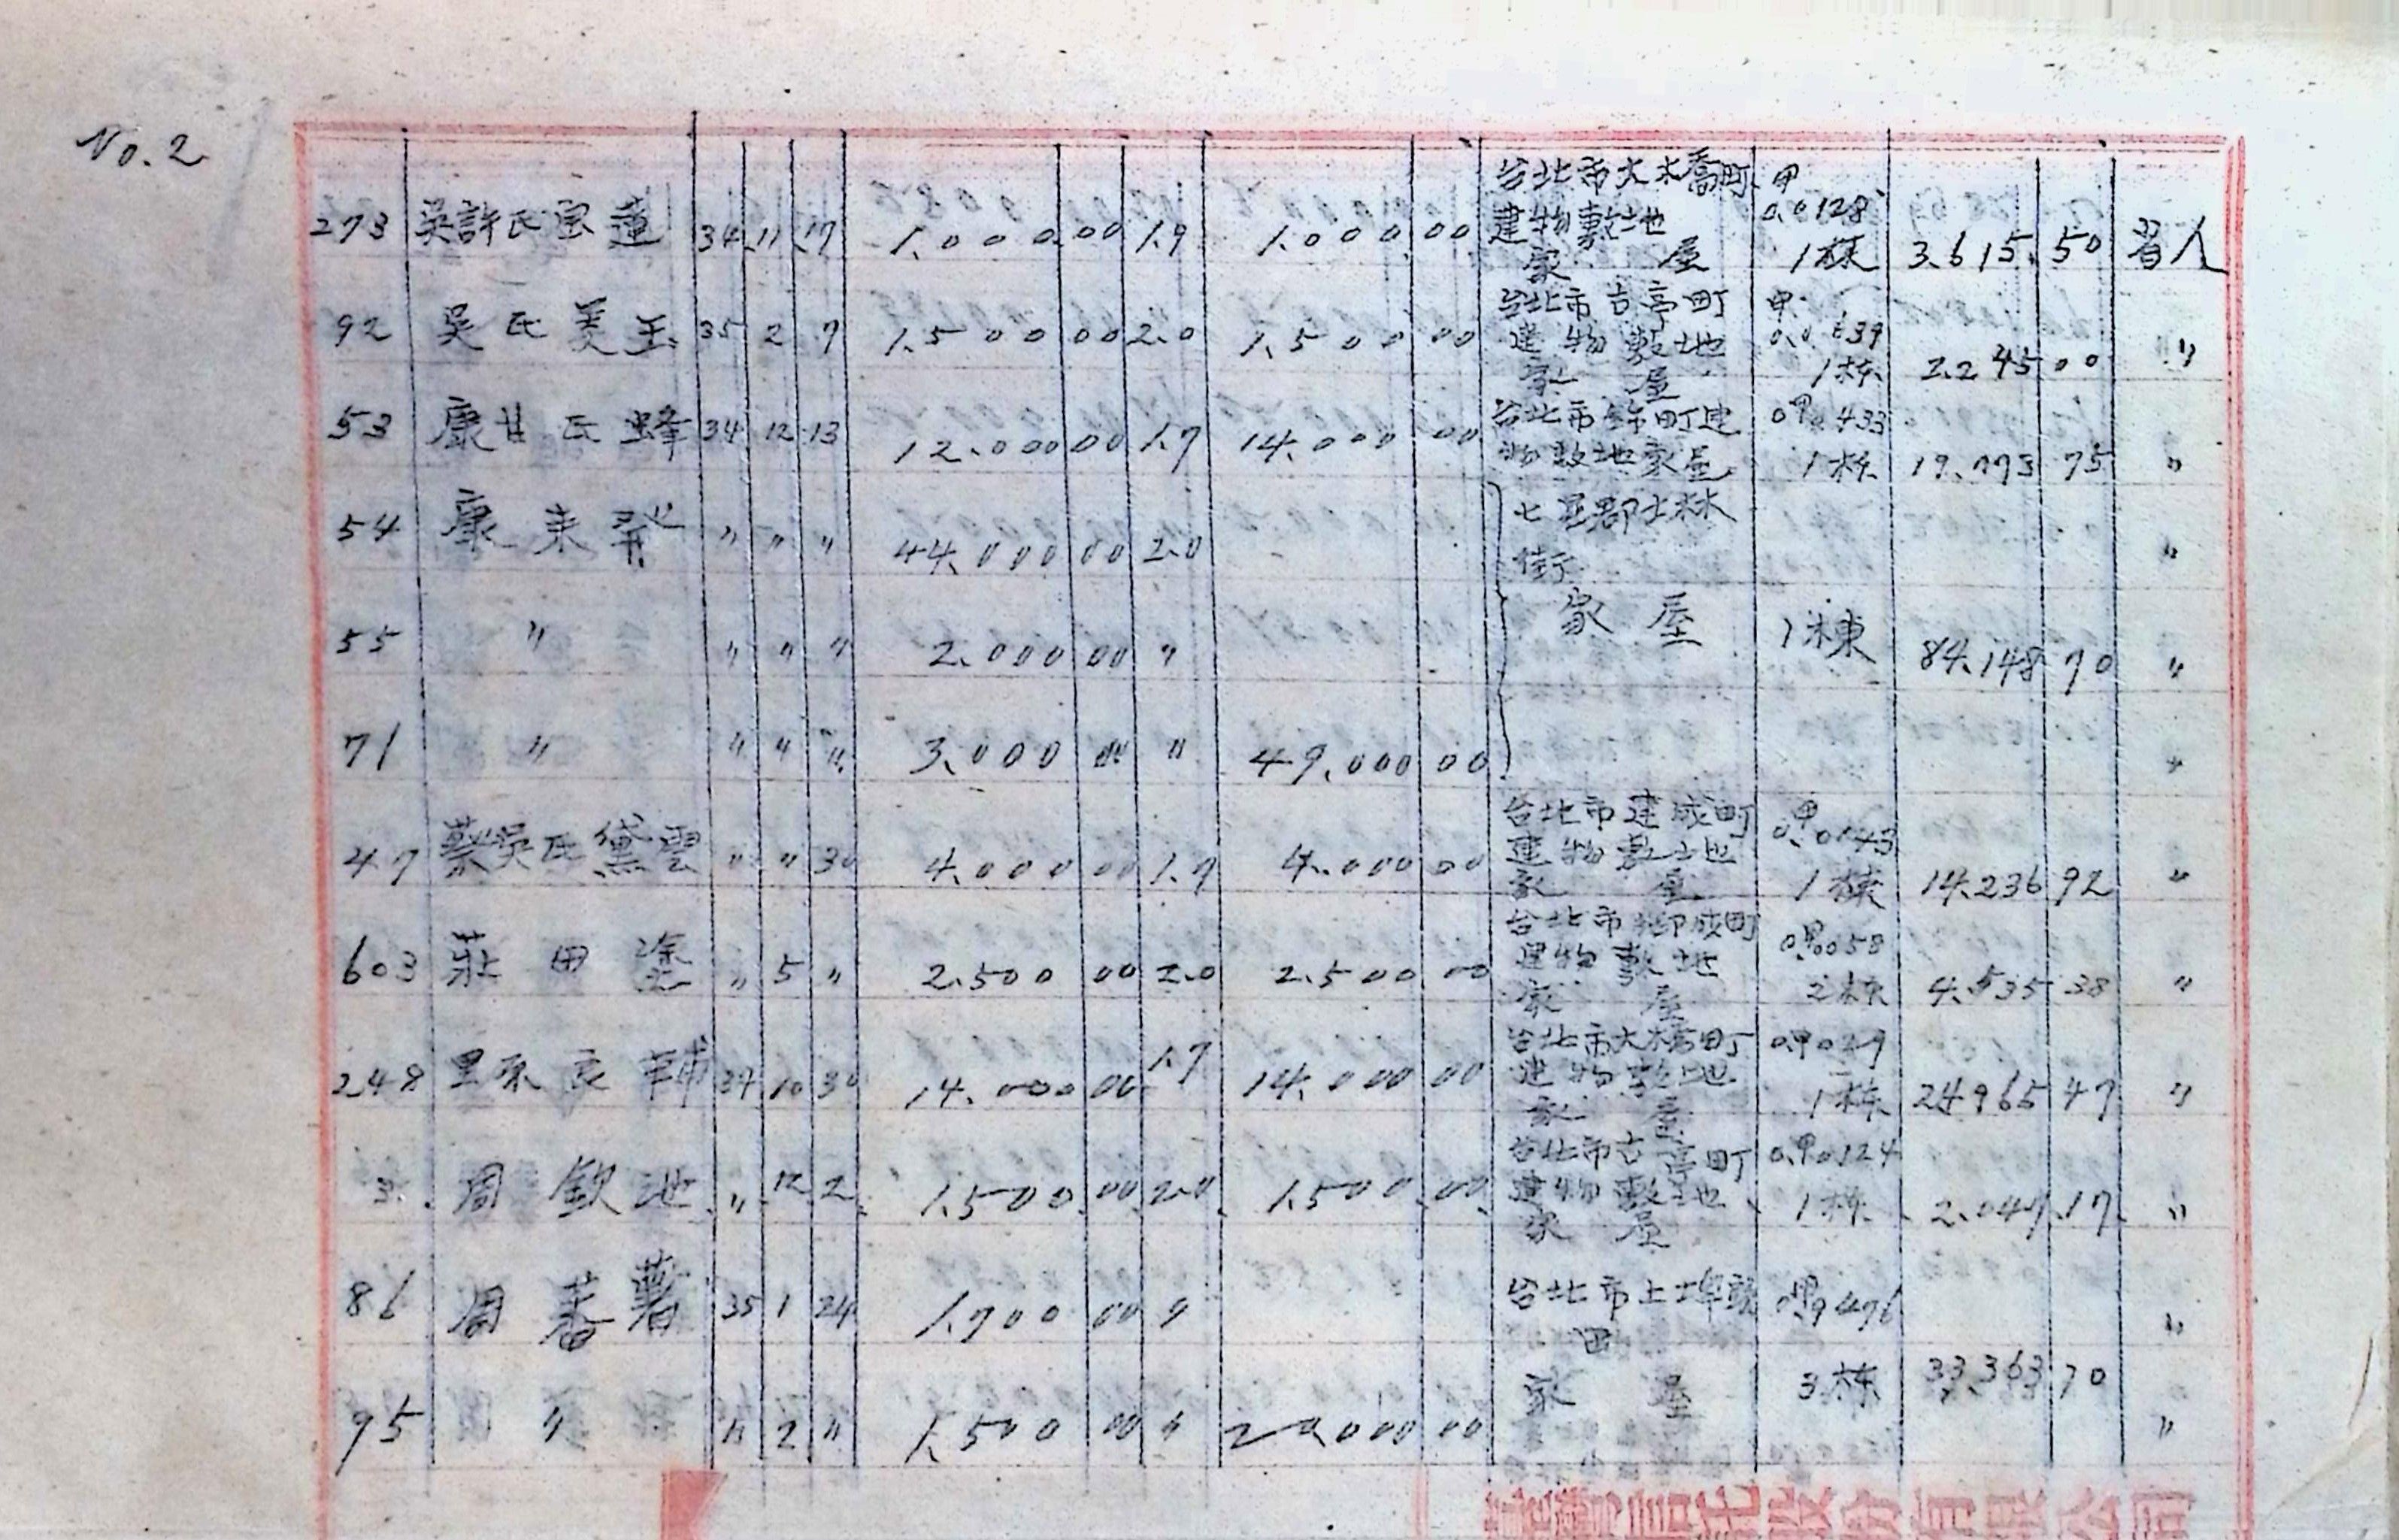 No.2
台北市大橋町 甲
273 吳許氏宝蓮 34 11 17 1.000 00 1.9 1.000 00 建物敷地 0.0128
家屋 1棟 3.615 50 省人
台北市古亭町 甲
92 吳氏美玉 35 2 7 1.500 00 2.0 1.500 00 建物敷地
家屋 1棟 2.245 00 〃
53 康甘氏蜂 34 12 13 12.000 00 1.7 14.000 00 台北市 町建 0甲0433
物敷地家屋 1棟 19.993 75 〃
54 康来發 〃 〃 〃 44.000 00 2.0 七星郡士林 〃
街
55 〃 〃 〃 〃 2.000 00 〃 家屋 1棟 84.148 70 〃
71 〃 〃 〃 〃 3.000 00 〃 49.000 00 〃
台北市建成町
47 蔡吳氏黛雲 〃 〃 30 4.000 00 1.7 4.000 00 建物敷地 0甲0143
家屋 1棟 14.236 92 〃
台北市御成町
603 莊田塗 〃 5 〃 2.500 00 2.0 2.500 00 建物敷地 0甲0058
家屋 2棟 4.535 38 〃
台北市大橋町
248 良輔 34 10 30 14.000 00 1.7 14.000 00 建物敷地
家屋 1棟 24965 47 〃
台北市古亭町 0甲0124
3. 周欽池 〃 12 2 1.500 00 2.0 1.500 00 建物敷地
家屋 1棟 2.047 17 〃
86 周蕃薯 35 1 24 1.700 00 〃 台北市上埤頭 0甲9476 〃
田
家屋 3棟 33.363 70
95 〃 〃 2 〃 1.500 00 〃 20.000 00 〃